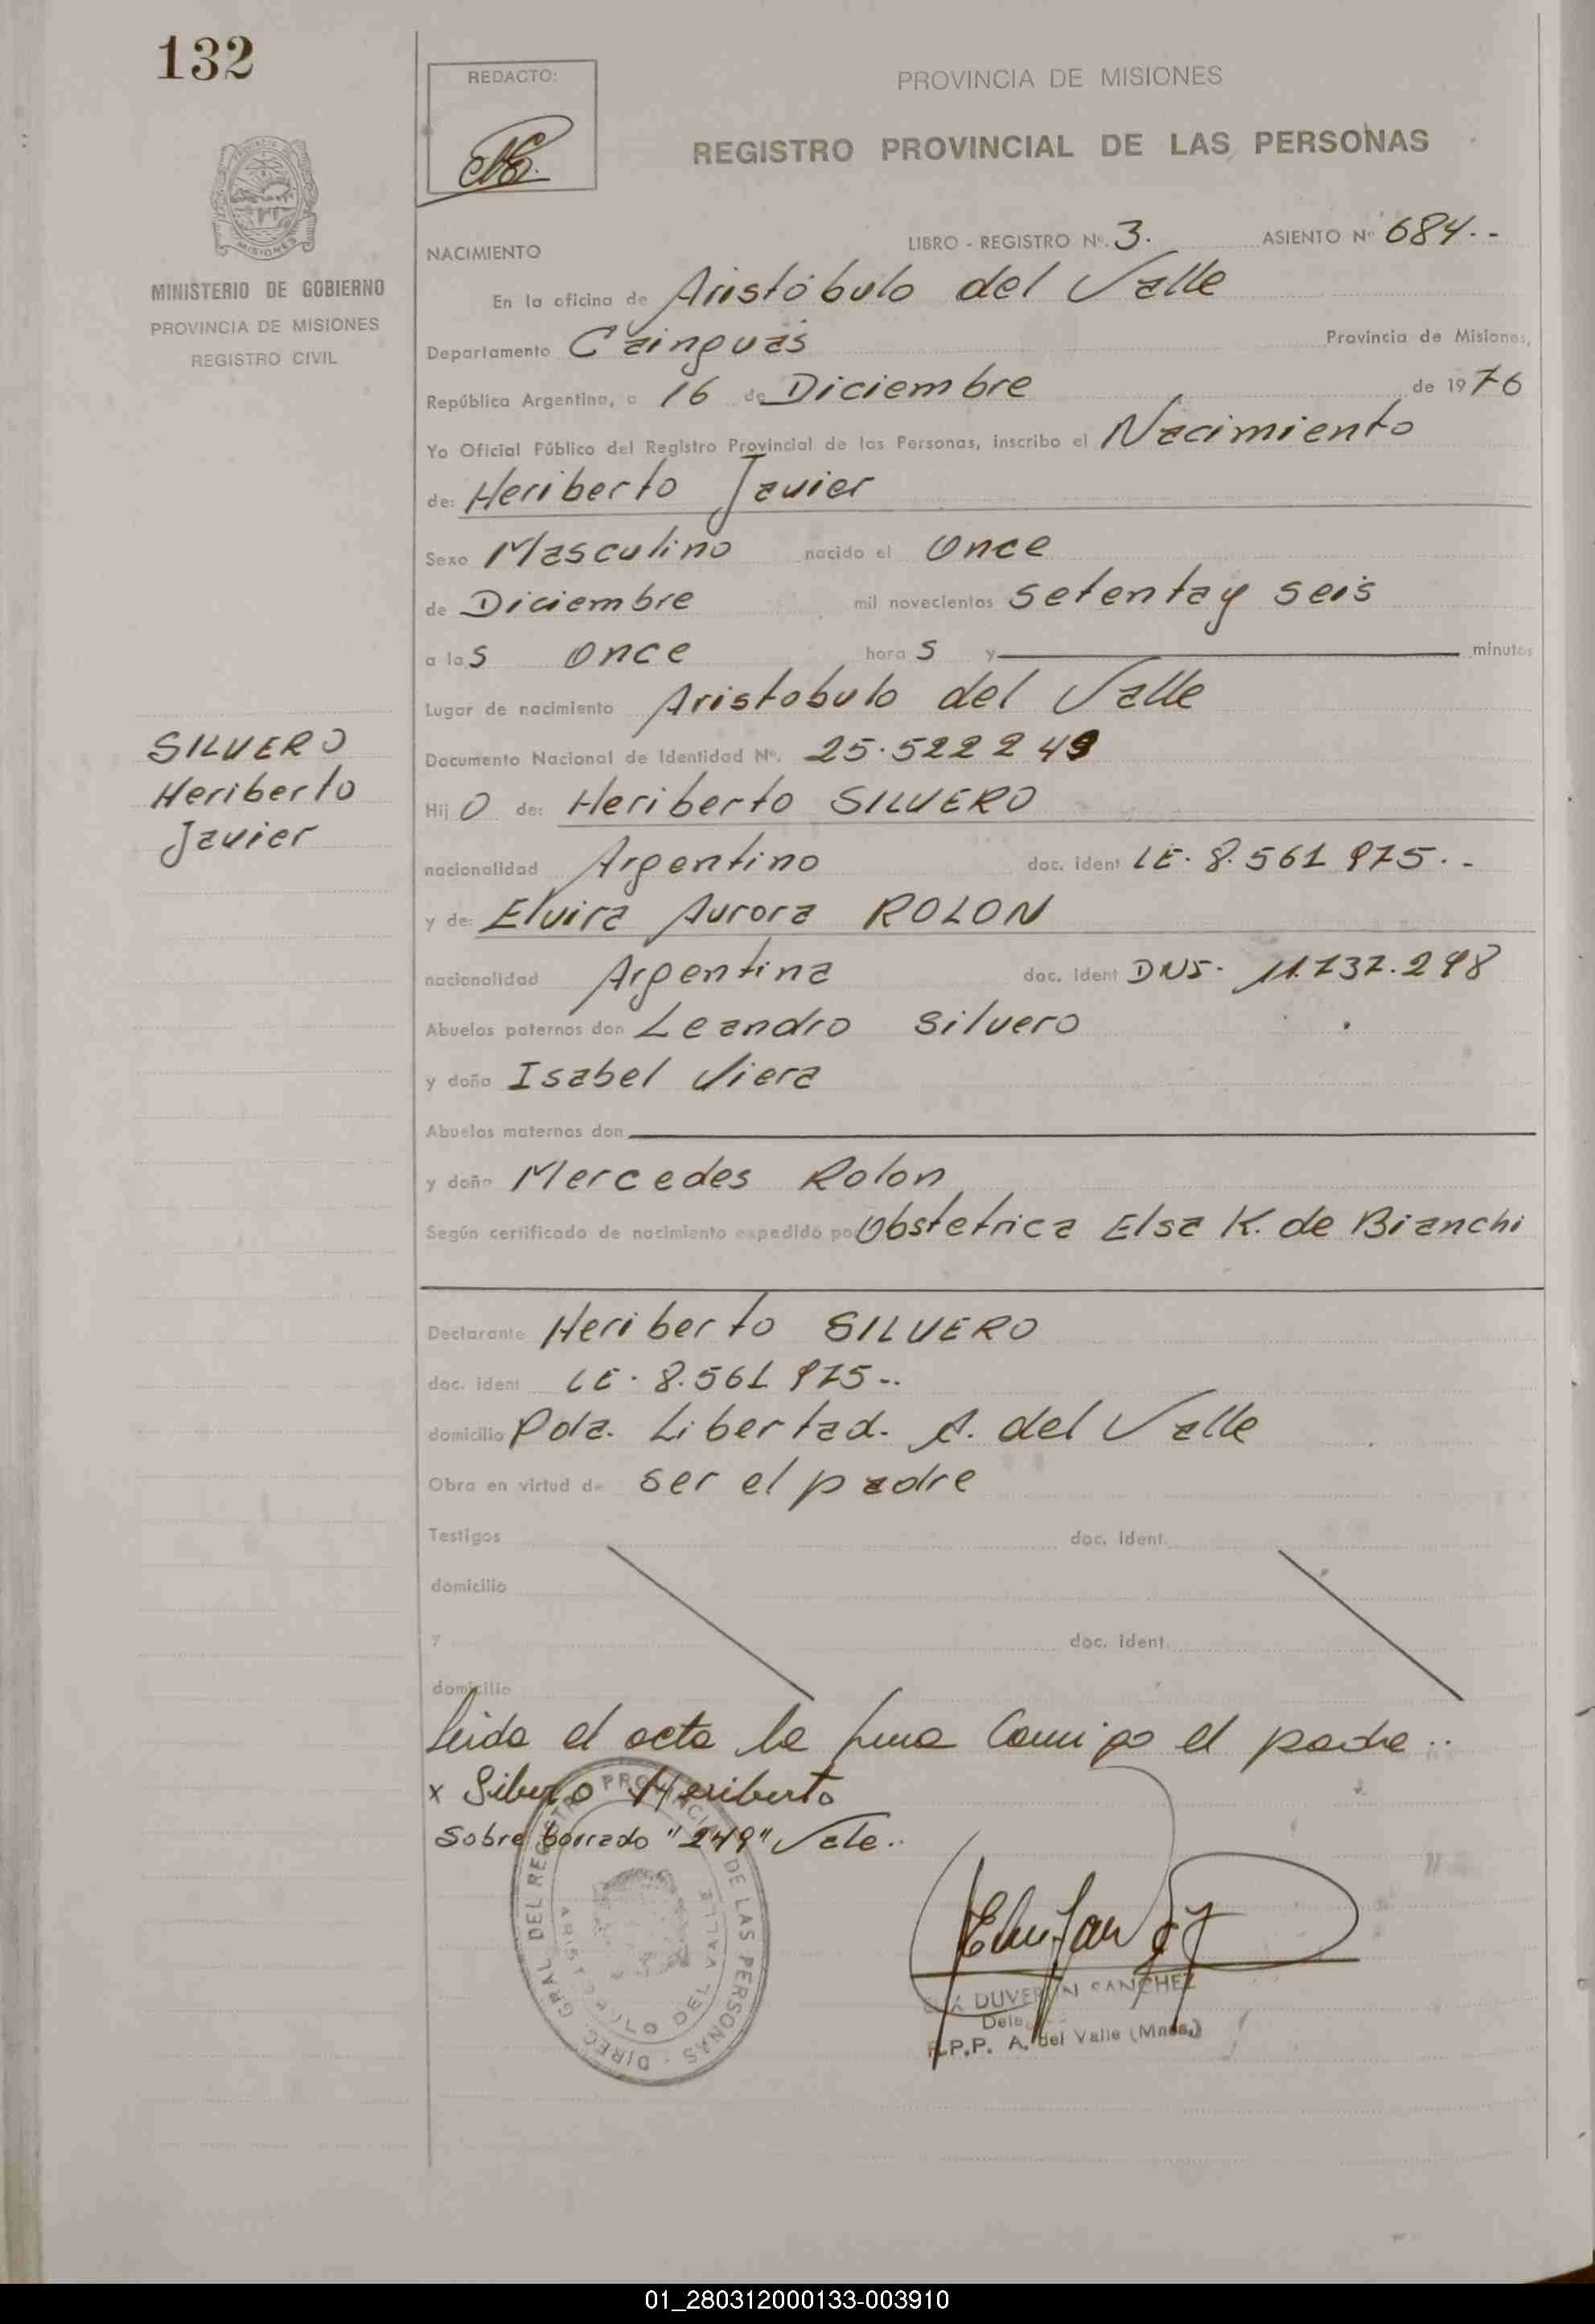 132
REDACTO:
PROVINCIA DE MISIONES
REGISTRO PROVINCIAL DE LAS PERSONAS
MISIONES
MINISTERIO DE GOBIERNO
PROVINCIA DE MISIONES
REGISTRO CIVIL
NACIMIENTO
LIBRO - REGISTRO Nº. 3. ASIENTO Nº 684.-
En la oficina de Aristóbulo del Valle
Departamento Cainguás Provincia de Misiones,
República Argentina, a 16 de Diciembre de 1976
Yo Oficial Público del Registro Provincial de las Personas, inscribo el Nacimiento
de: Heriberto Javier
Sexo Masculino nacido el Once
de Diciembre mil novecientos setenta y seis
a las Once horas y minutos
Lugar de nacimiento Aristobulo del Valle
SILVERO
Heriberto
Javier
Documento Nacional de Identidad Nº. 25.522249
Hijo de: Heriberto SILVERO
nacionalidad Argentino doc. ident LE. 8.561 975.-
y de: Elvira Aurora ROLON
nacionalidad Argentina doc. ident DNI. 11.737.298
Abuelos paternos don Leandro Silvero
y doña Isabel Viera
Abuelos maternos don
y doña Mercedes Rolon
Según certificado de nacimiento expedido por Obstetrica Elsa K. de Bianchi
Declarante Heriberto SILVERO
doc. ident LE. 8.561 975..
domicilio Pda. Libertad. A. del Valle
Obra en virtud de ser el padre
Testigos doc. ident.
domicilio
y doc. ident.
domicilio
Leida el acta la firma Conmigo el padre..
x Silvero Heriberto
Sobre borrado "249" Vale..
DIREC. GRAL DEL REGISTRO PROVINCIAL DE LAS PERSONAS
ARISTOBULO DEL VALLE
SANCHEZ
R.P.P. A. del Valle (Mnes.)
01_280312000133-003910